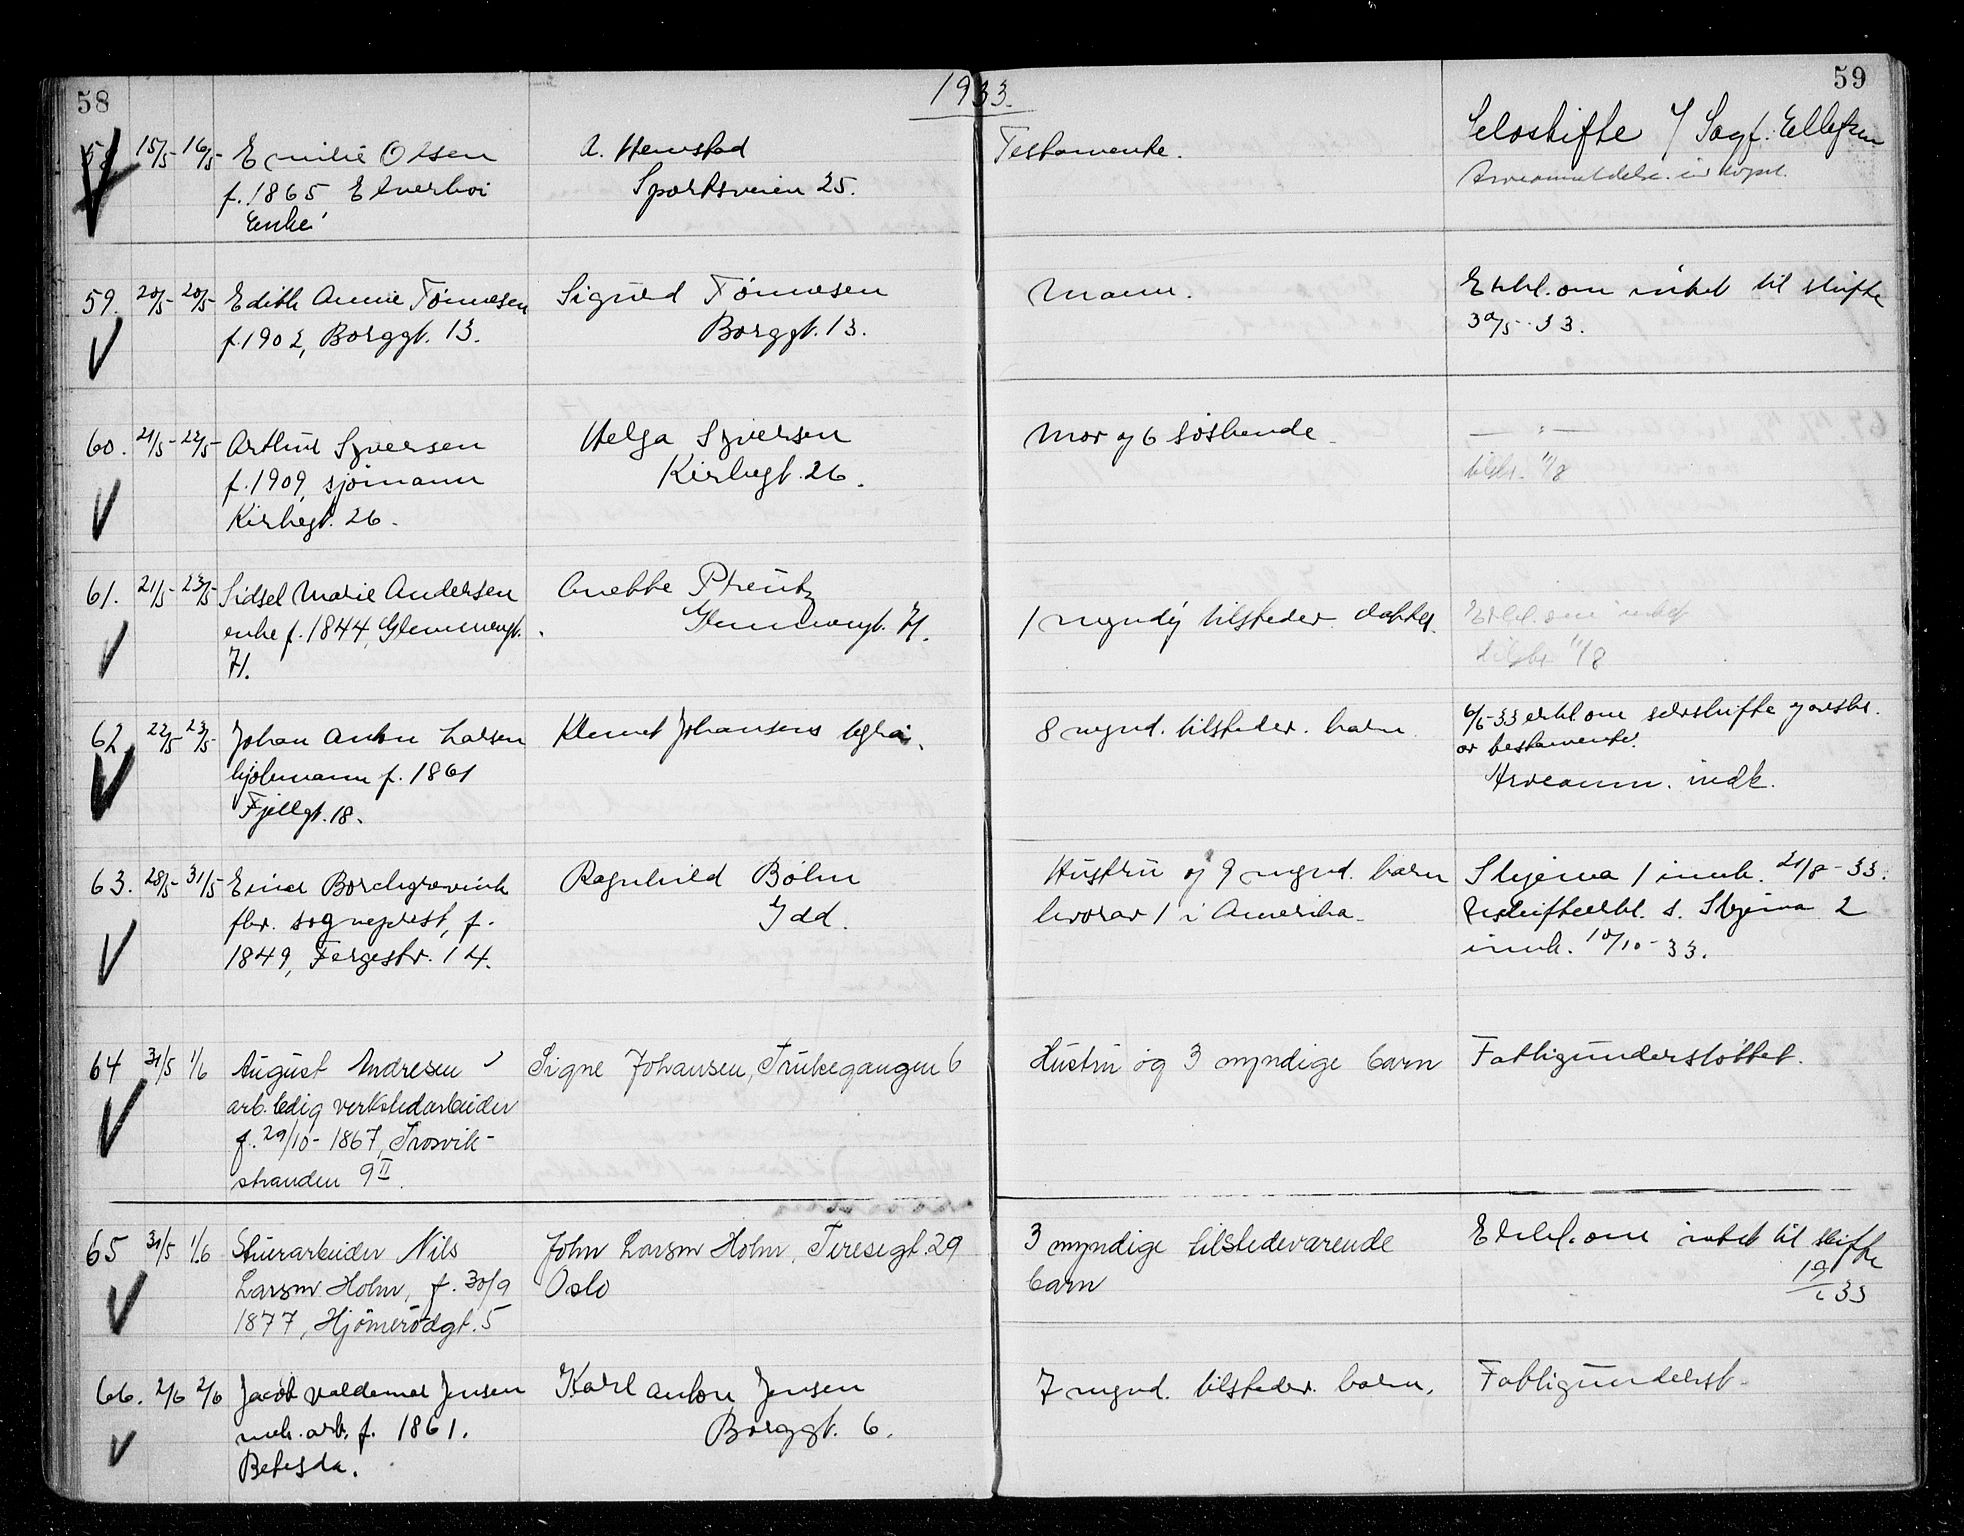 58
1933.
59
58 15/5- 16/5- Emilie Olsen A. Hemstad Testamente. Selvskifte v/ Sagf. Ellefsen
f. 1865 Ekverhøi Sportsveien 25.
Enke
59. 20/5- 20/5- Edith Annie Tønnesen Sigurd Tønnesen Mann. Erkl. om intet til skifte
f. 1902, Borggt. 13. Borggt. 13. 30/5-33.
60. 21/5- 22/5- Arthur Syversen Helga Syversen Mor og 6 søskende — " —
f. 1909, sjømann Kirkegt. 26. tilskr. 11/8
Kirkegt. 26.
61. 21/5- 23/5- Sidsel Marie Andersen Anette Preutz
enke f. 1844, Glemmengt. Glemmengt. 71. 1 myndig tilsteder. datter. Erkl. om intet
71. tilskr 11/8
62 22/5- 23/5- Johan Anton Larsen Klemet Johansens 8 mynd. tilsteder. barn. 6/6-33 erkl om selvskifte
or testamente.
kjølmann f. 1861 Arveanm. indk.
Fjellgt. 18.
63. 28/5- 31/5- Einar Borchgrevink Ragnhild Bølm Hustru og 9 mynd. barn Skjema 1 innk. 21/8-33.
fhv. sogneprest, f. Idd. hvorav 1 i Amerika. Uskifteerkl. s. Skjema 2
1849, Fergestr. 14. innk. 10/10-33.
64 31/5 1/6 August Andresen Signe Johansen, Trukegangen 6 Hustru og 3 myndige barn Fattigunderstøttet.
arb.ledig verkstedarbeider
f. 29/10-1867, Trosvik-
stranden 9 II.
65 31/5 1/6 Stuerarbeider Nils John Larsen Holm, Teresegt. 29 3 myndige tilstedeværende Erkl. om intet til skifte
Larsen Holm, f. 30/9 Oslo barn 19/6 33
1877, Hjømerødgt. 5
66. 2/6 2/6 Jacob Valdemar Jensen Karl Anton Jensen 7 mynd. tilsteder. barn. Fattigunderst.
mek. arb. f. 1861. Borggt. 6.
Betesda.